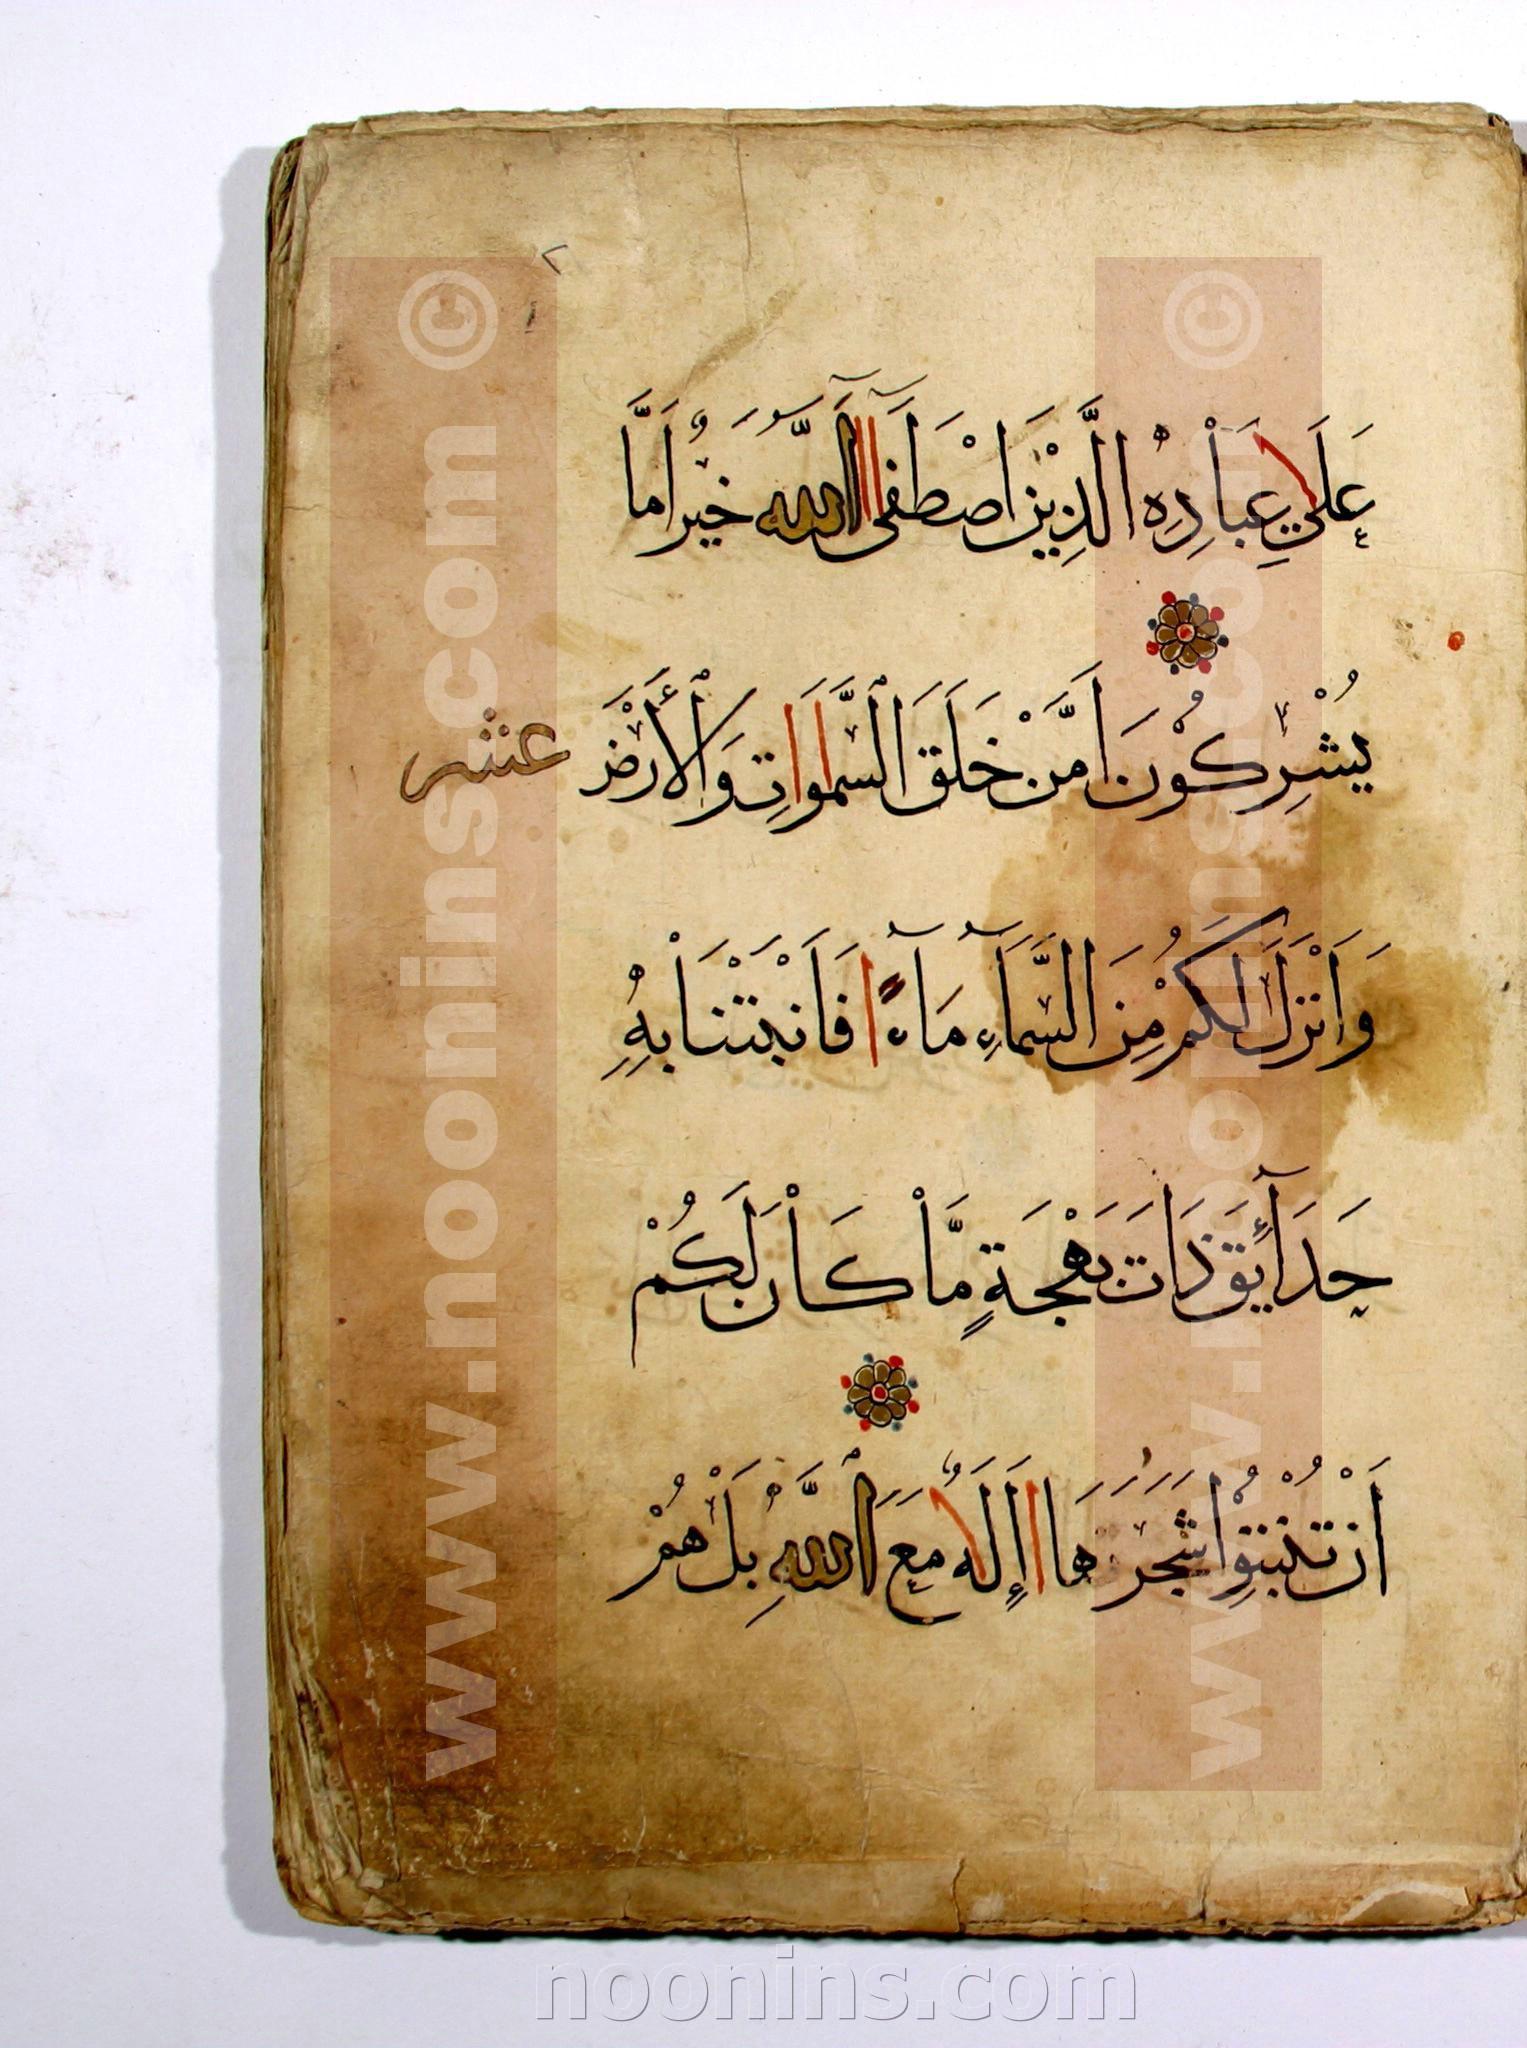 ٢
عَلَىٰ عِبَادِهِ الَّذِيْنَ اصْطَفَىٰٓ اٰللّٰهُ خَيْرٌ اَمَّا
يُشْرِكُوْنَ اَمَّنْ خَلَقَ السَّمٰوَاتِ وَالْأَرْضَ
عشر
وَاَنْزَلَ لَكُمْ مِنَ السَّمَآءِ مَآءً فَاَنْبَتْنَا بِهٖ
حَدَآئِقَ ذَاتَ بَهْجَةٍ مَّا كَانَ لَكُمْ
اَنْ تُنْبِتُوْا شَجَرَهَا أَإِلٰهٌ مَعَ اللّٰهِ بَلْ هُمْ
www.noonins.com ©
www.noonins.com ©
noonins.com